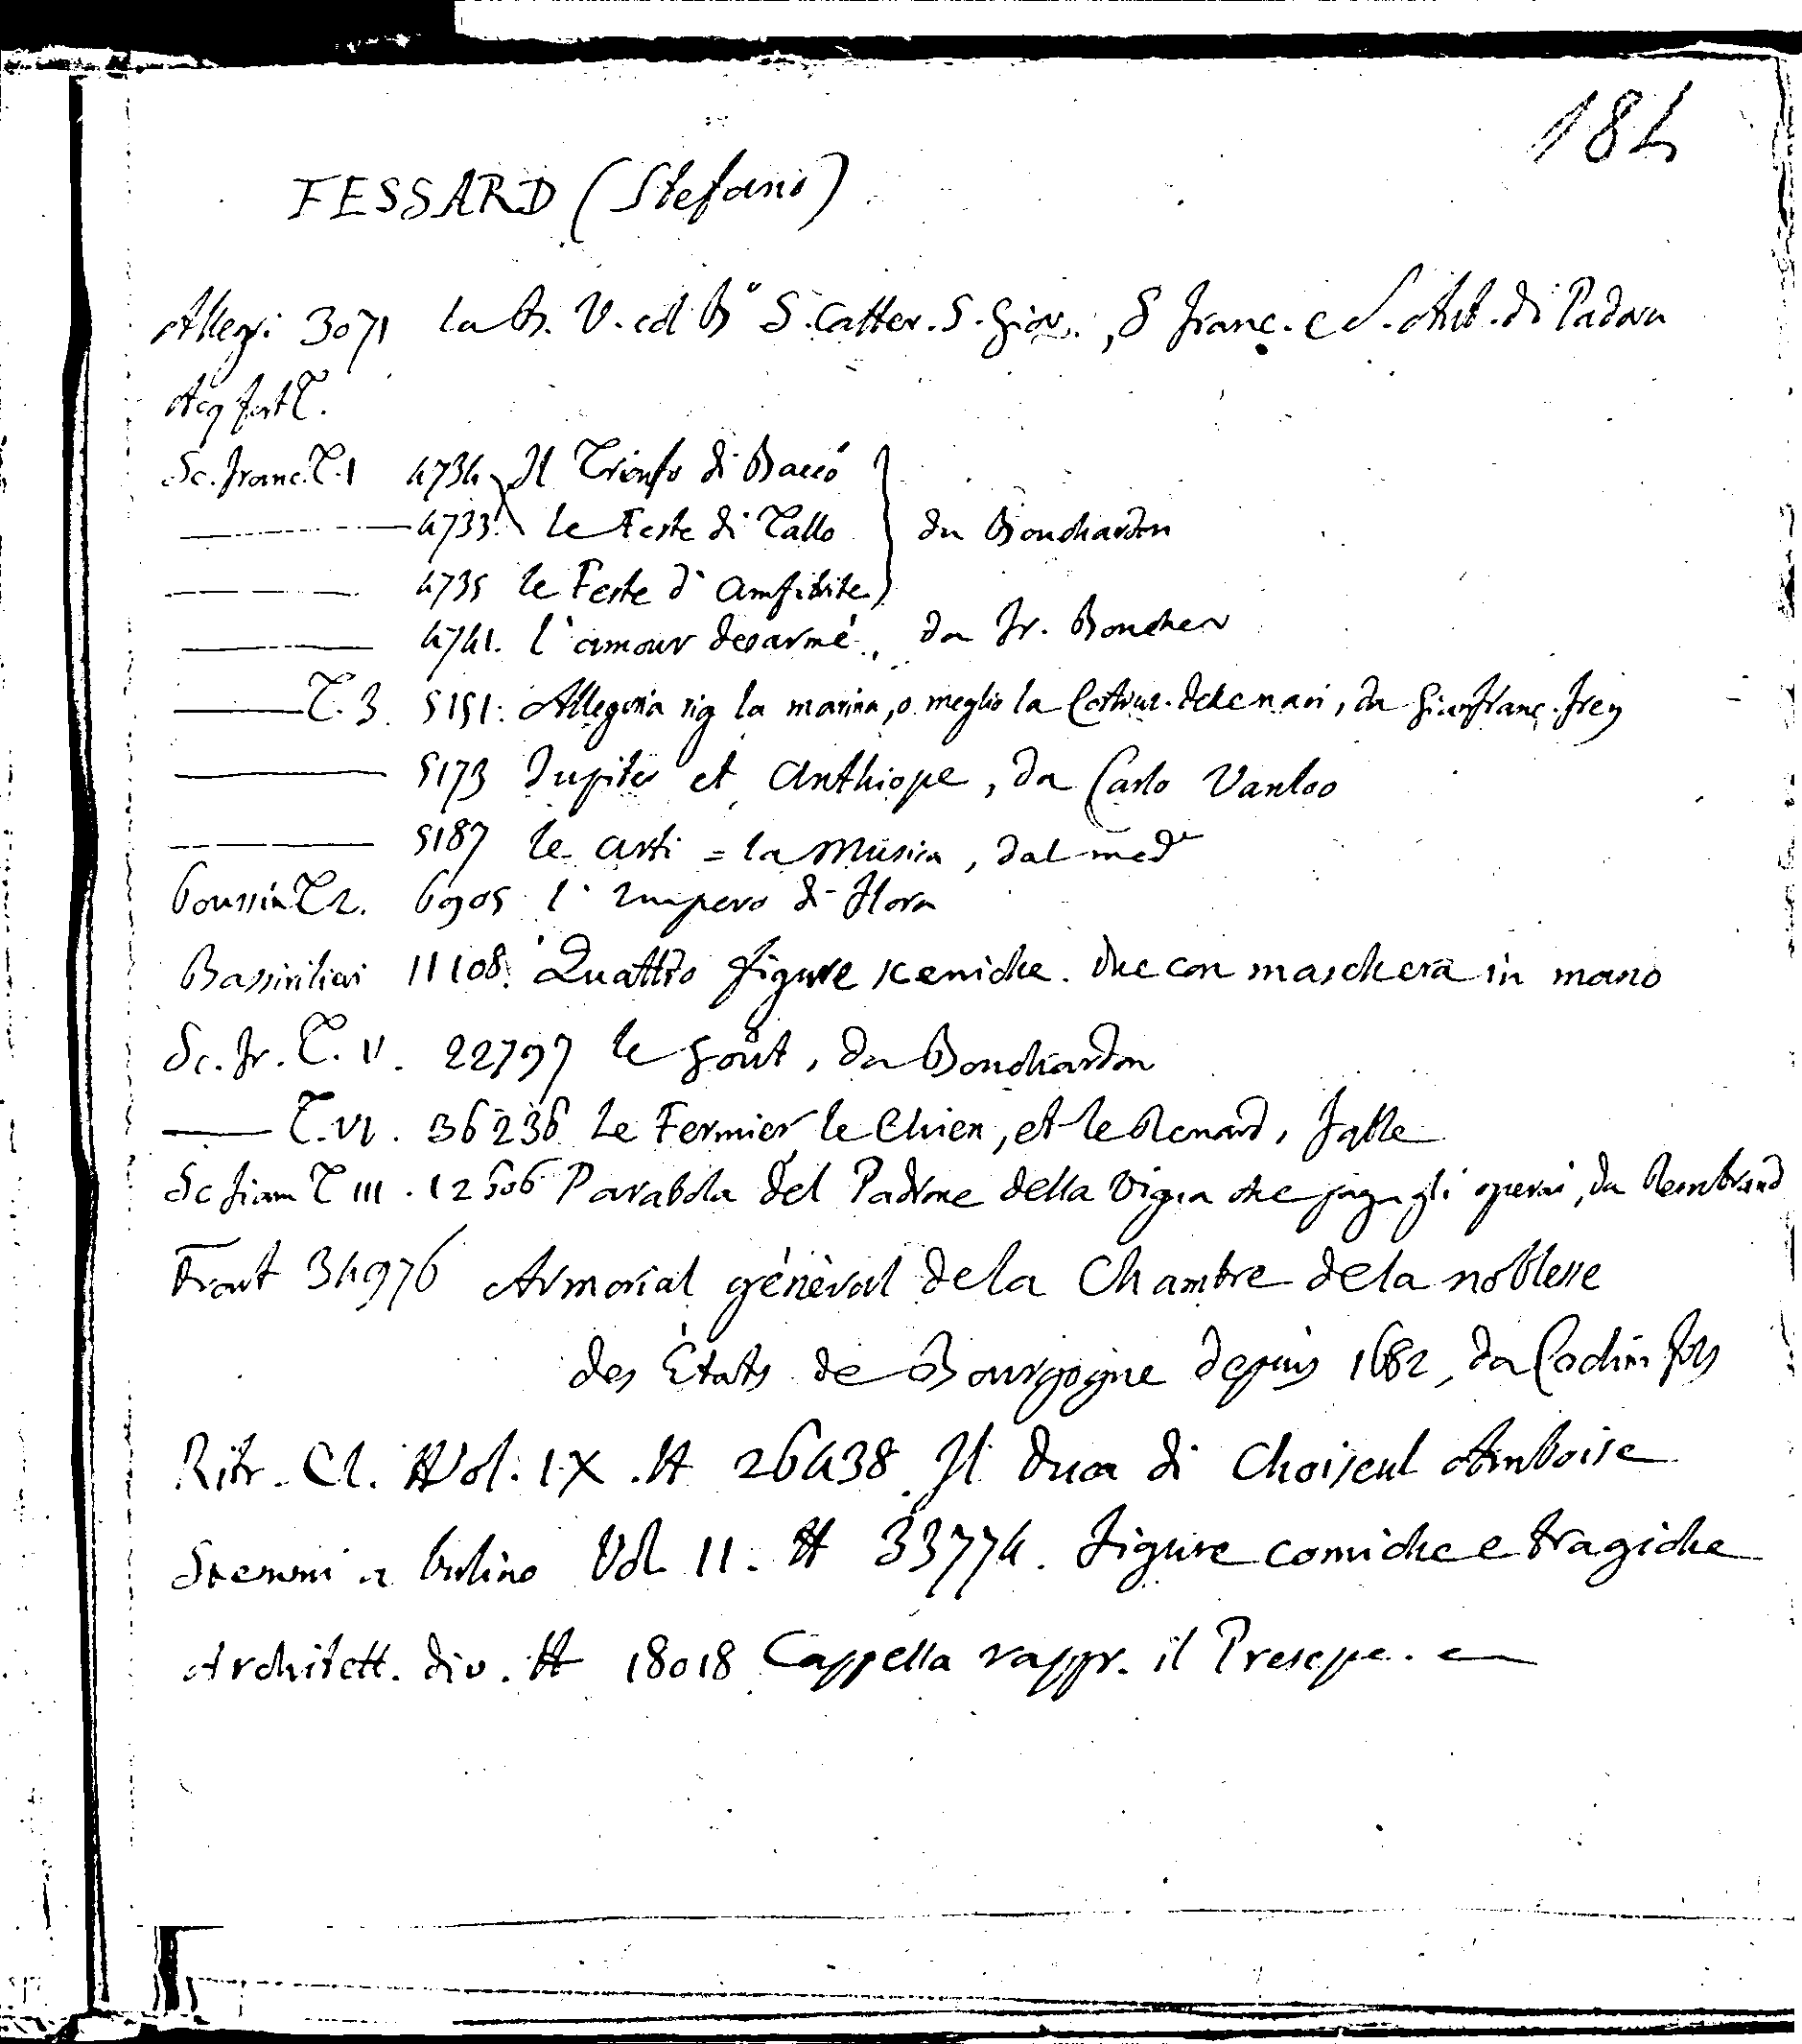 184
FESSARD (Stefano)
Allegri 3071 la B. V. col Bº S. Catter. S. Giov., S Franc. e S. Ant. di Padova
Acq fort T.
Sc. Franc. T. 1 4734 Il Trionfo di Bacco
4733 le Feste di Tallo } da Bouchardon
4735 le Feste d'Amfitrite
4741. l'amour desarmé, da Fr. Boucher
T. 3. 5151. Allegoria sig la marina, o meglio la Costruz. delle navi, da Gianfranc. Frey
5173 Jupiter et Anthiope, da Carlo Vanloo
5187 le arti = la Musica, dal med
Poussin T 2. 6905 l'Impero di Flora
Bassirilievi 11108. Quattro figure sceniche. due con maschera in mano
Sc. Fr. T. V. 22797 le Goût, da Bouchardon
T. VI. 36236 Le Fermier le Chien, et le Renard, Fable
Sc fiam T III. 12506 Parabola del Padrone della Vigna che paga gli operai, da Rembrand
Front 34976 Armorial général de la Chambre de la noblesse
des États de Bourgogne depuis 1682, da Cochin
Ritr. Cl. Vol. IX. # 26438 Il Duca di Choiseul Amboise
Stemmi a bulino Vol. II. # 33774. Figure comiche e tragiche
Architett. div. # 18018 Cappella rappr. il Presepe.